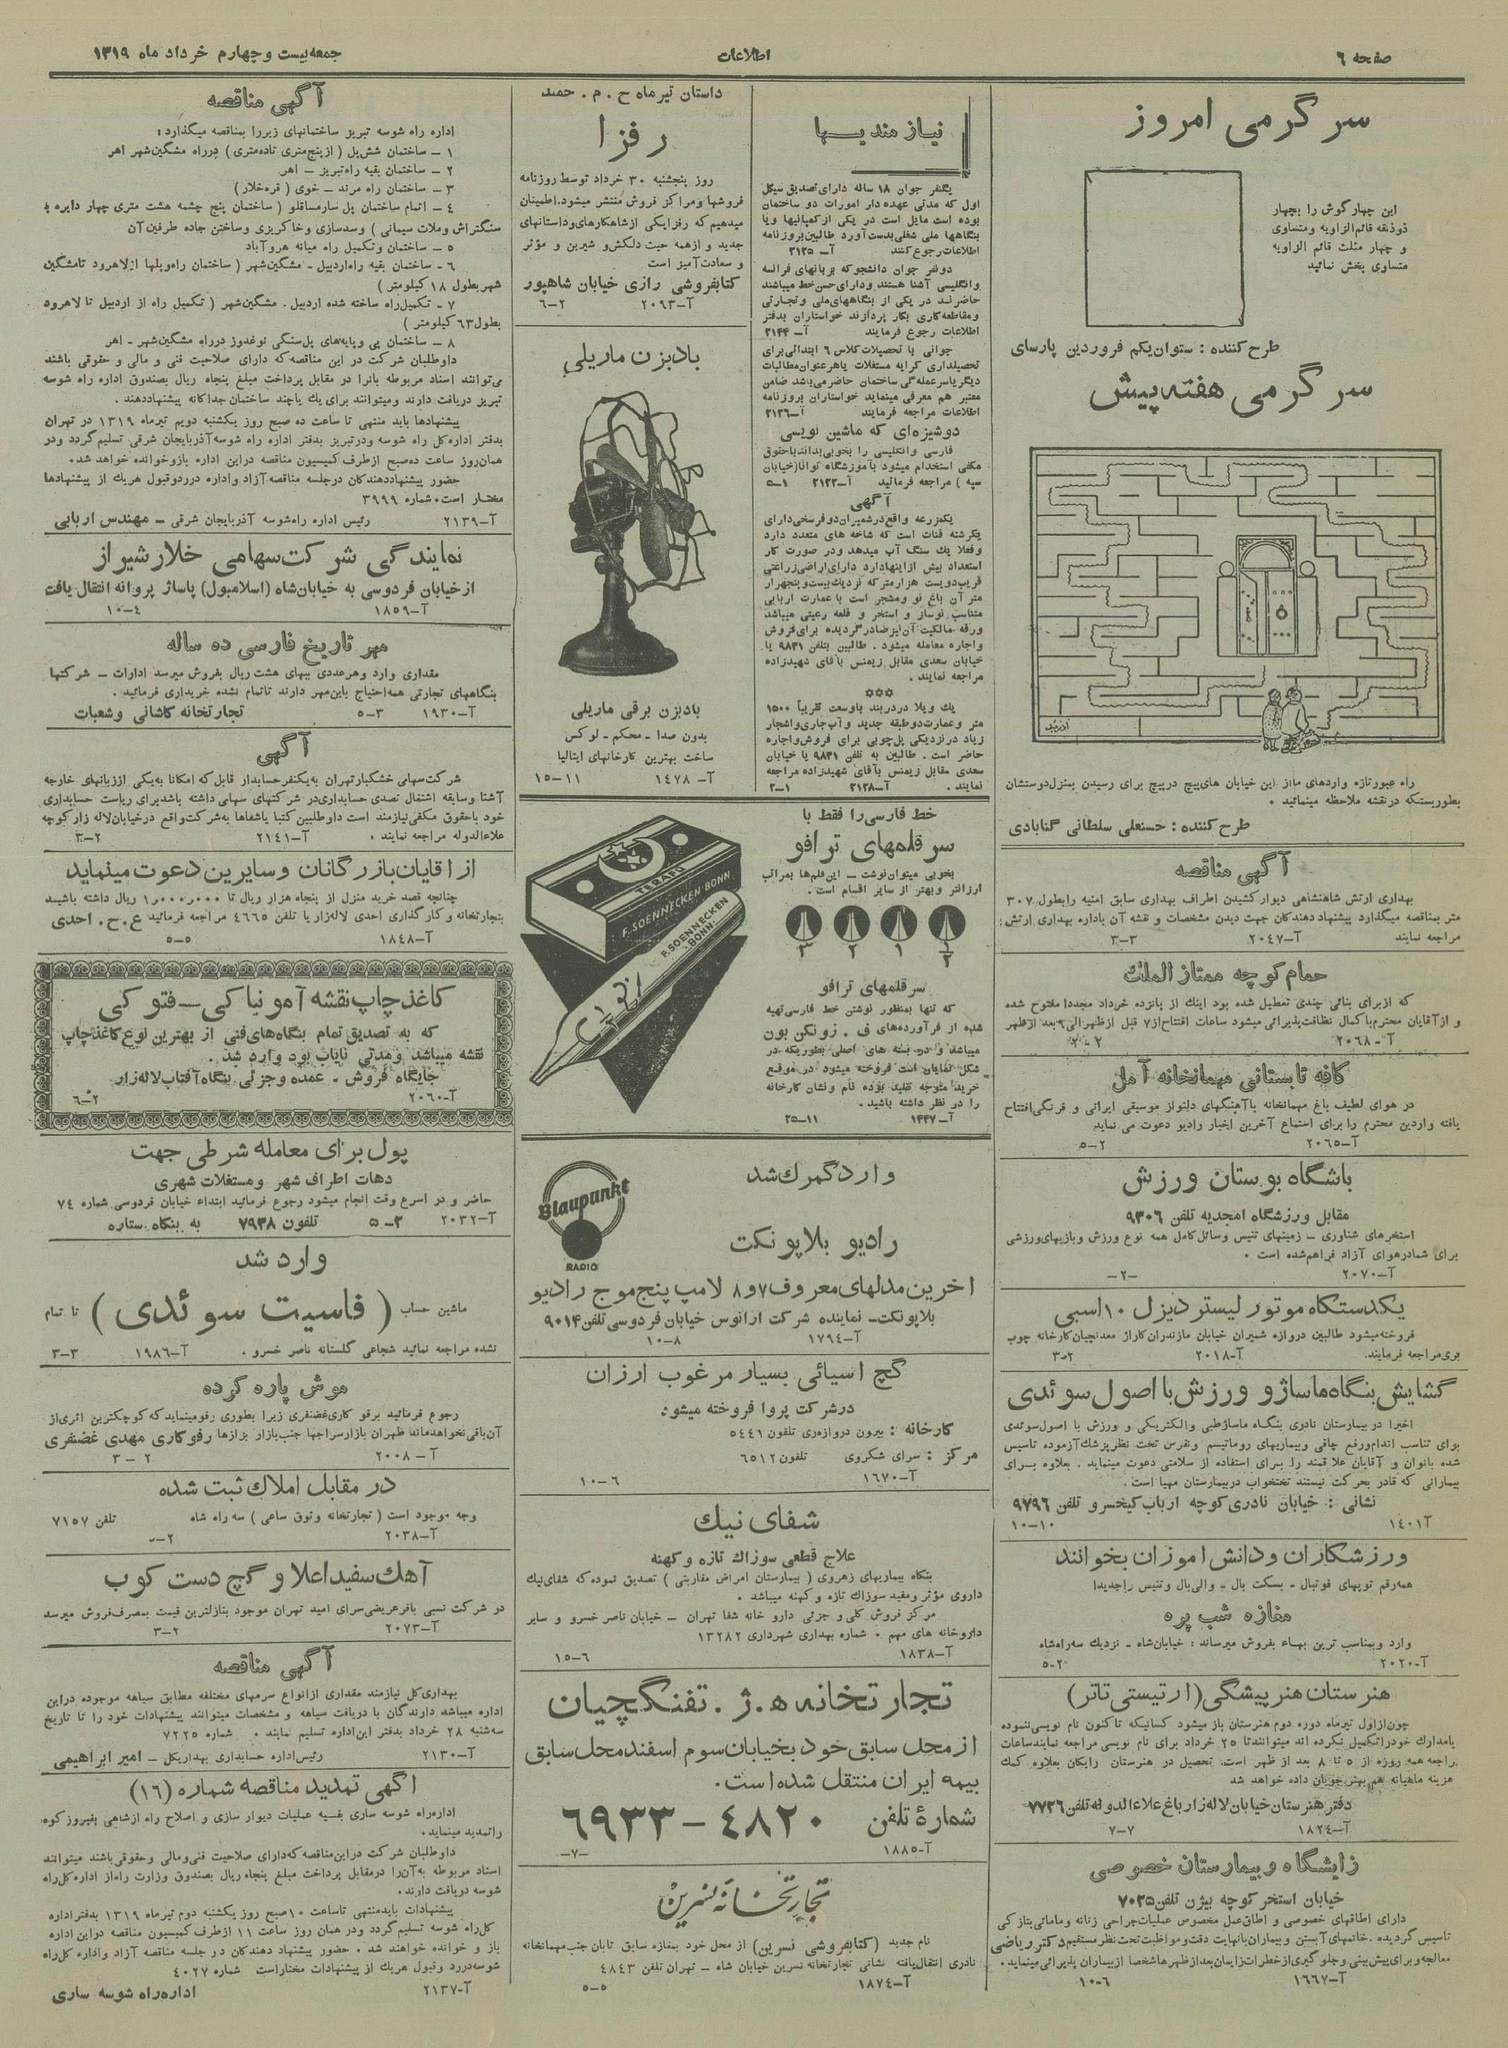 صفحه ۶
اطلاعات
جمعه بیست و چهارم خرداد ماه ۱۳۱۹
سرگرمی امروز
این چهار گوش را بچهار
ذوذنقه قائم‌الزاویه و متساوی
و چهار مثلث قائم الزاویه
متساوی بخش نمائید
طرح کننده : ستوان یکم فروردین پارسای
سرگرمی هفته پیش
راه عبور تازه واردهای ما از این خیابان های پیچ در پیچ برای رسیدن بمنزل دوستشان
بطوریستکه در نقشه ملاحظه مینمائید .
طرح کننده : حسنعلی سلطانی گنابادی
آگهی مناقصه
بهداری ارتش شاهنشاهی دیوار کشیدن اطراف بهداری سابق امنیه را بطول ۳۰۷
متر بمناقصه میگذارد پیشنهاد دهندگان جهت دیدن مشخصات و نقشه آن باداره بهداری ارتش
مراجعه نمایند آ-۲۰۴۷ ۳-۳
حمام کوچه ممتاز الملك
که از برای بنائی چندی تعطیل شده بود اینك از پانزده خرداد مجددا مفتوح شده
و از آقایان محترم با کمال نظافت پذیرائی میشود ساعات افتتاح از ۷ قبل از ظهر الی ۹ بعد از ظهر
آ-۲۰۶۸ ۲-۲
کافه تابستانی مهمانخانه آمل
در هوای لطیف باغ مهمانخانه با آهنگهای دلنواز موسیقی ایرانی و فرنگی افتتاح
یافته واردین محترم را برای استماع آخرین اخبار رادیو دعوت می نماید
آ-۲۰۶۵ ۵-۲
باشگاه بوستان ورزش
مقابل ورزشگاه امجدیه تلفن ۹۳۰۶
استخرهای شناوری - زمینهای تنیس وسائل کامل همه نوع ورزش و بازیهای ورزشی
برای شما در هوای آزاد فراهم شده است .
آ-۲۰۷۰ -۲-
یکدستگاه موتور لیستر دیزل ۱۰ اسبی
فروخته میشود طالبین دروازه شمیران خیابان مازندران کاراژ معدنچیان کارخانه چوب
بری مراجعه فرمایند. آ-۲۰۱۸ ۳-۲
گشایش بنگاه ماساژ و ورزش با اصول سوئدی
اخیرا در بیمارستان نادری بنگاه ماساژ طبی و الکتریکی و ورزش با اصول سوئدی
برای تناسب اندام و رفع چاقی و بیماریهای روماتیسم و نقرس تحت نظر پزشك آزموده تاسیس
شده بانوان و آقایان علاقمند را برای استفاده از سلامتی دعوت مینماید . بعلاوه برای
بیمارانی که قادر بحرکت نیستند تختخواب در بیمارستان مهیا است .
نشانی : خیابان نادری کوچه ارباب کیخسرو تلفن ۹۷۹۶
آ۱۴۰۱ ۱۰-۱۰
ورزشکاران و دانش اموزان بخوانند
همه رقم توپهای فوتبال - بسکت بال - والی بال و تنیس را جدیدا
مغازه شب پره
وارد و بمناسب ترین بهاء بفروش میرساند : خیابان شاه - نزدیك سه راه شاه
آ-۲۰۲۰ ۵-۲
هنرستان هنرپیشگی (ارتیستی تاتر)
چون از اول تیرماه دوره دوم هنرستان باز میشود کسانیکه تا کنون نام نویسی ننموده
یا مدارك خود را تکمیل نکرده اند میتوانند تا ۲۵ خرداد برای نام نویسی مراجعه نمایند ساعات
مراجعه همه روزه از ۵ تا ۸ بعد از ظهر است. تحصیل در هنرستان رایگان بعلاوه کمك
هزینه ماهیانه هم بهنرجویان داده خواهد شد
دفتر هنرستان خیابان لاله زار باغ علاء الدوله تلفن ۷۷۳۶
آ-۱۸۲۴ ۷-۷
زایشگاه و بیمارستان خصوصی
خیابان استخر کوچه بیژن تلفن ۷۰۲۵
دارای اطاقهای خصوصی و اطاق عمل مخصوص عملیات جراحی زنانه و مامائی بتازگی
تاسیس گردیده . خانمهای آبستن و بیماران با نهایت دقت و مواظبت تحت نظر مستقیم دکتر ریاضی
معالجه و برای پیش بینی و جلوگیری از خطرات زایمان بعد از ظهرها شخصا از بیماران پذیرائی مینماید .
آ-۱۶۶۷ ۱۰-۶
نیازمندیها
یکنفر جوان ۱۸ ساله دارای تصدیق سیکل
اول که مدتی عهده دار امورات دو ساختمان
بوده است مایل است در یکی از کمپانیها و یا
بنگاهها ملی شغلی بدست آورد طالبین بروزنامه
اطلاعات رجوع کنند آ-۲۱۲۵
دو نفر جوان دانشجو که بزبانهای فرانسه
و انگلیسی آشنا هستند و دارای حسن خط میباشند
حاضرند در یکی از بنگاههای ملی و تجارتی
و مقاطعه کاری بکار پردازند خواستاران بدفتر
اطلاعات رجوع فرمایند آ-۲۱۴۴
جوانی با تحصیلات کلاس ۶ ابتدائی برای
تحصیلداری کرایه مستغلات یا هر عنوان مطالبات
دیگر یا سر عمله گی ساختمان حاضر می باشد ضامن
معتبر هم معرفی مینماید خواستاران بروزنامه
اطلاعات مراجعه فرمایند آ-۲۱۲۶
دوشیزه‌ای که ماشین نویسی
فارسی و انگلیسی را بخوبی بداند با حقوق
مکفی استخدام میشود با آموزشگاه توانا (خیابان
سپه ) مراجعه فرمائید آ-۲۱۲۲ ۵-۱
آگهی
یکمزرعه واقع در شمیران دو فرسخی دارای
یکرشته قنات است که شاخه های متعدد دارد
و فعلا یك سنگ آب میدهد و در صورت کار
استعداد بیش از اینها دارد دارای اراضی زراعتی
قریب دویست هزار متر که نزدیك بیست و پنجهزار
متر آن باغ نو و مشجر است با عمارت اربابی
متناسب نوساز و استخر و قلعه رعیتی میباشد
ورقه مالکیت آن نیز صادر گردیده برای فروش
و اجاره معامله میشود . طالبین بتلفن ۹۸۳۱ یا
خیابان سعدی مقابل زیمنس باقای شهیدزاده
مراجعه نمایند .
***
یك ویلا در دربند باوسعت تقریباً ۱۵۰۰
متر و عمارت دو طبقه جدید و آب جاری و اشجار
زیاد در نزدیکی پل چوبی برای فروش و اجاره
حاضر است . طالبین به تلفن ۹۸۳۱ یا خیابان
سعدی مقابل زیمنس باقای شهیدزاده مراجعه
نمایند . آ-۲۱۲۸ ۲-۱
داستان تیر ماه ح . م . حمید
رفزا
روز پنجشنبه ۳۰ خرداد توسط روزنامه
فروشها و مراکز فروش منتشر میشود. اطمینان
میدهیم که رفزا یکی از شاهکارهای و داستانهای
جدید و از همه حیث دلکش و شیرین و مؤثر
و سعادت آمیز است
کتابفروشی رازی خیابان شاهپور
آ-۲۰۹۳ ۶-۲
بادبزن ماریلی
بادبزن برقی ماریلی
بدون صدا - محکم - لوکس
ساخت بهترین کارخانهای ایتالیا
آ- ۱۴۷۸ ۱۵-۱۱
خط فارسی را فقط با
سرقلمهای ترافو
بخوبی میتوان نوشت - این قلم‌ها بمراتب
ارزانتر و بهتر از سایر اقسام است .
۳ ۲ ۱ ½
TERAFO
F. SOENNECKEN BONN
F. SOENNECKEN
BONN
سرقلمهای ترافو
که تنها بمنظور نوشتن خط فارسی تهیه
شده از فرآورده‌های ف . زونکن بون
میباشد و در بسته های اصلی بطوریکه در
شکل نمایان است فروخته میشود در موقع
خرید متوجه تقلید بوده نام و نشان کارخانه
را در نظر داشته باشید .
آ-۱۴۴۷ ۲۵-۱۱
وارد گمرك شد
Blaupunkt
RADIO
رادیو بلاپونکت
اخرین مدلهای معروف ۷ و ۸ لامپ پنج موج رادیو
بلاپونکت - نماینده شرکت ارانوس خیابان فردوسی تلفن ۹۰۱۴
آ-۱۷۹۴ ۱۰-۸
گچ اسیائی بسیار مرغوب ارزان
در شرکت پروا فروخته میشود
کارخانه : بیرون دروازه ری تلفون ۵۴۴۱
مرکز : سرای شکروی تلفون ۶۵۱۲
آ-۱۶۷۰ ۱۰-۶
شفای نیك
علاج قطعی سوزاك تازه و کهنه
بنگاه بیماریهای زهروی ( بیمارستان امراض مقاربتی ) تصدیق نموده که شفای نیك
داروی مؤثر و مفید سوزاك تازه و کهنه میباشد .
مرکز فروش کلی و جزئی دارو خانه شفا تهران - خیابان ناصر خسرو و سایر
داروخانه های مهم . شماره بهداری شهرداری ۱۳۲۸۲
آ-۱۸۳۸ ۱۵-۶
تجارتخانه ه . ژ . تفنگچیان
از محل سابق خود بخیابان سوم اسفند محل سابق
بیمه ایران منتقل شده است .
شمارهٔ تلفن ۴۸۲۰ - ۶۹۳۳
آ-۱۸۸۵ -۷-
تجارتخانه نسرین
نام جدید (کتابفروشی نسرین) از محل خود بمغازه سابق تابان جنب مهمانخانه
نادری انتقال یافته نشانی تجارتخانه نسرین خیابان شاه - تهران تلفن ۴۸۴۳
آ-۱۸۷۴ ۵-۵
آگهی مناقصه
اداره راه شوسه تبریز ساختمانهای زیر را بمناقصه میگذارد :
۱ - ساختمان شش پل ( از پنج متری تا ده متری ) در راه مشگین شهر اهر
۲ - ساختمان بقیه راه تبریز - اهر
۳ - ساختمان راه مرند - خوی ( قره خلار )
۴ - اتمام ساختمان پل سارمساقلو ( ساختمان پنج چشمه هشت متری چهار دایره با
سنگتراش و ملات سیمانی ) و سدسازی و خاکریزی و ساختن جاده طرفین آن
۵ - ساختمان و تکمیل راه میانه هروآباد
۶ - ساختمان بقیه راه اردبیل - مشگین شهر ( ساختمان راه و پلها از لاهرود تا مشگین
شهر بطول ۱۸ کیلومتر )
۷ - تکمیل راه ساخته شده اردبیل - مشگین شهر ( تکمیل راه از اردبیل تا لاهرود
بطول ۶۳ کیلومتر )
۸ - ساختمان پی و پایه‌های پل سنگی نوغدوز در راه مشگین شهر - اهر
داوطلبان شرکت در این مناقصه که دارای صلاحیت فنی و مالی و حقوقی باشند
می‌توانند اسناد مربوطه بانرا در مقابل پرداخت مبلغ پنجاه ریال بصندوق اداره راه شوسه
تبریز دریافت دارند و میتوانند برای یك یا چند ساختمان جداگانه پیشنهاد دهند .
پیشنهادها باید منتهی تا ساعت ده صبح روز یکشنبه دویم تیرماه ۱۳۱۹ در تهران
بدفتر اداره کل راه شوسه و در تبریز بدفتر اداره راه شوسه آذربایجان شرقی تسلیم گردد و در
همان روز ساعت ده صبح از طرف کمیسیون مناقصه در این اداره باز و خوانده خواهد شد .
حضور پیشنهاد دهندگان در جلسه مناقصه آزاد و اداره در رد و قبول هر یك از پیشنهادها
مختار است . شماره ۳۹۹۹
آ-۲۱۳۹ رئیس اداره راه شوسه آذربایجان شرقی - مهندس اربابی
نمایندگی شرکت سهامی خلار شیراز
از خیابان فردوسی به خیابان شاه (اسلامبول) پاساژ پروانه انتقال یافت
آ-۱۸۵۹ ۱۰-۴
مهر تاریخ فارسی ده ساله
مقداری وارد و هر عددی ببهای هشت ریال بفروش میرسد ادارات - شرکتها
بنگاههای تجارتی همه احتیاج باین مهر دارند تا تمام نشده خریداری فرمائید .
آ-۱۹۳۰ ۵-۳ تجارتخانه کاشانی و شعبات
آگهی
شرکت سهامی خشکبار تهران به یکنفر حسابدار قابل که امکانا به یکی از زبانهای خارجه
آشنا و سابقه اشتغال تصدی حسابداری در شرکتهای سهامی داشته باشد برای ریاست حسابداری
خود با حقوق مکفی نیازمند است داوطلبین کتبا یا شفاها به شرکت واقع در خیابان لاله زار کوچه
علاء الدوله مراجعه نمایند . آ-۲۱۴۱ ۳-۲
از اقایان بازرگانان و سایرین دعوت مینماید
چنانچه قصد خرید منزل از پنجاه هزار ریال تا ۱٫۰۰۰٫۰۰۰ ریال داشته باشید
بتجارتخانه و کارگذاری احدی لاله زار یا تلفن ۴۶۶۵ مراجعه فرمائید ع . ح . احدی
آ-۱۸۴۸ ۵-۵
کاغذ چاپ نقشه آمونیاکی - فتوکپی
که به تصدیق تمام بنگاه‌های فنی از بهترین نوع کاغذ چاپ
نقشه میباشد و مدتی نایاب بود وارد شد .
جایگاه فروش - عمده و جزئی بنگاه آفتاب لاله زار
آ-۲۰۶۰ ۶-۲
پول برای معامله شرطی جهت
دهات اطراف شهر و مستغلات شهری
حاضر و در اسرع وقت انجام میشود رجوع فرمائید ابتداء خیابان فردوسی شماره ۷۴
آ-۲۰۳۲ ۵-۲ تلفون ۷۹۳۸ به بنگاه ستاره
وارد شد
ماشین حساب ( فاسیت سوئدی ) تا تمام
نشده مراجعه نمائید شجاعی گلستانه ناصر خسرو . آ-۱۹۸۶ ۳-۳
موش پاره کرده
رجوع فرمائید برفو کاری غضنفری زیرا بطوری رفو مینماید که کوچکترین اثری از
آن باقی نخواهد ماند طهران بازار سراجها جنب بازار بزازها رفوکاری مهدی غضنفری
آ-۲۰۰۸ ۳-۲
در مقابل املاك ثبت شده
وجه موجود است ( تجارتخانه وثوق ساعی ) سه راه شاه تلفن ۷۱۵۷
آ-۲۰۳۸
آهك سفید اعلا و گچ دست کوب
در شرکت نسبی باقر عریضی سرای امید تهران موجود بنازلترین قیمت بمصرف فروش میرسد
آ-۲۰۷۳ ۳-۲
آگهی مناقصه
بهداری کل نیازمند مقداری از انواع سرمهای مختلفه مطابق سیاهه موجوده در این
اداره میباشد دارندگان با دریافت سیاهه و مشخصات میتوانند پیشنهادات خود را تا تاریخ
سه شنبه ۲۸ خرداد بدفتر این اداره تسلیم نمایند . شماره ۷۲۲۵
آ-۲۱۳۰ رئیس اداره حسابداری بهداری کل - امیر ابراهیمی
اگهی تمدید مناقصه شماره (۱۶)
اداره راه شوسه ساری بقیه عملیات دیوار سازی و اصلاح راه از شاهی بفیروز کوه
را تمدید مینماید .
داوطلبان شرکت در این مناقصه که دارای صلاحیت فنی و مالی و حقوقی باشند میتوانند
اسناد مربوطه به آن را در مقابل پرداخت مبلغ پنجاه ریال بصندوق وزارت راه از اداره کل راه
شوسه دریافت دارند .
پیشنهادات باید منتهی تا ساعت ۱۰ صبح روز یکشنبه دوم تیرماه ۱۳۱۹ بدفتر اداره
کل راه شوسه تسلیم گردد و در همان روز ساعت ۱۱ از طرف کمیسیون مناقصه در این اداره
باز و خوانده خواهند شد . حضور پیشنهاد دهندگان در جلسه مناقصه آزاد و اداره کل راه
شوسه در رد و قبول هر یك از پیشنهادات مختار است شماره ۴۰۲۷
آ-۲۱۳۷ اداره راه شوسه ساری